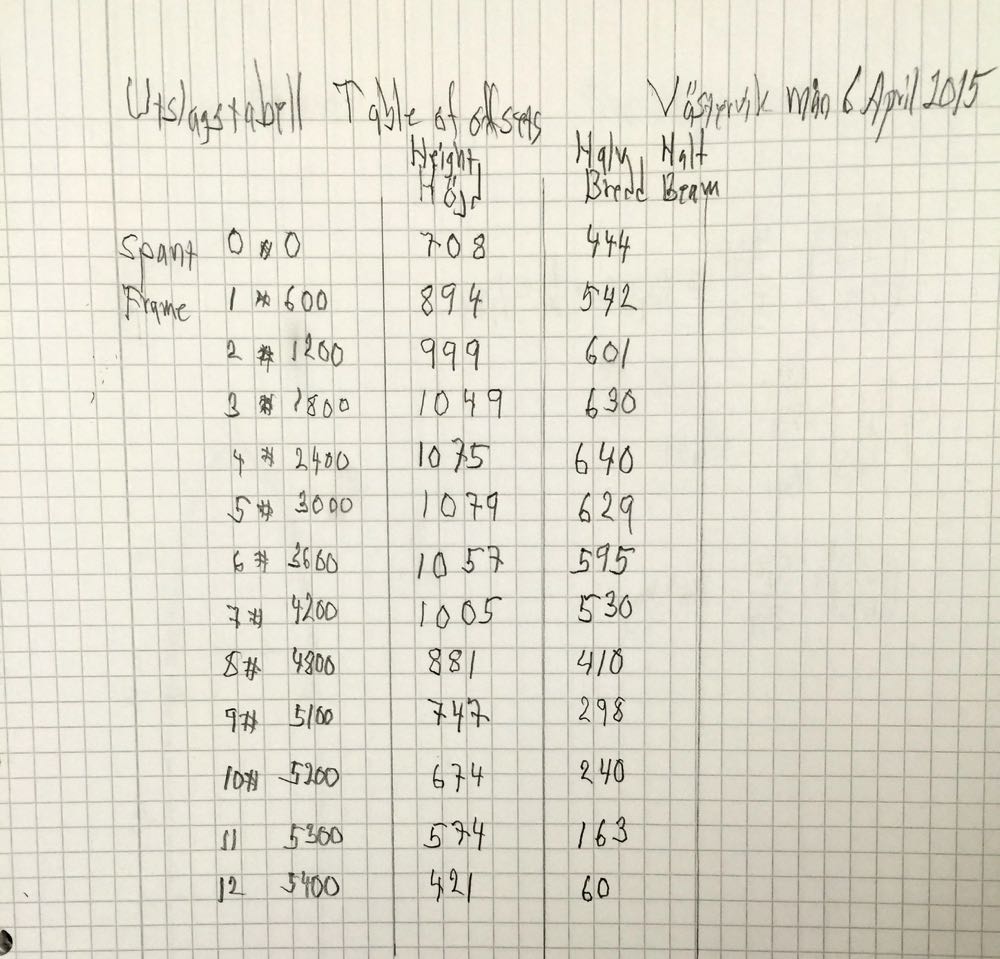 Utslagstabell Table of offsets Västervik mån 6 April 2015
Height Halv Half
Höjd Bredd Beam
Spant 0 # 0 708 444
Frame 1 # 600 894 542
2 # 1200 999 601
3 # 1800 1049 630
4 # 2400 1075 640
5 # 3000 1079 629
6 # 3600 1057 595
7 # 4200 1005 530
8 # 4800 881 410
9 # 5100 747 298
10 # 5200 674 240
11 5300 574 163
12 5400 421 60